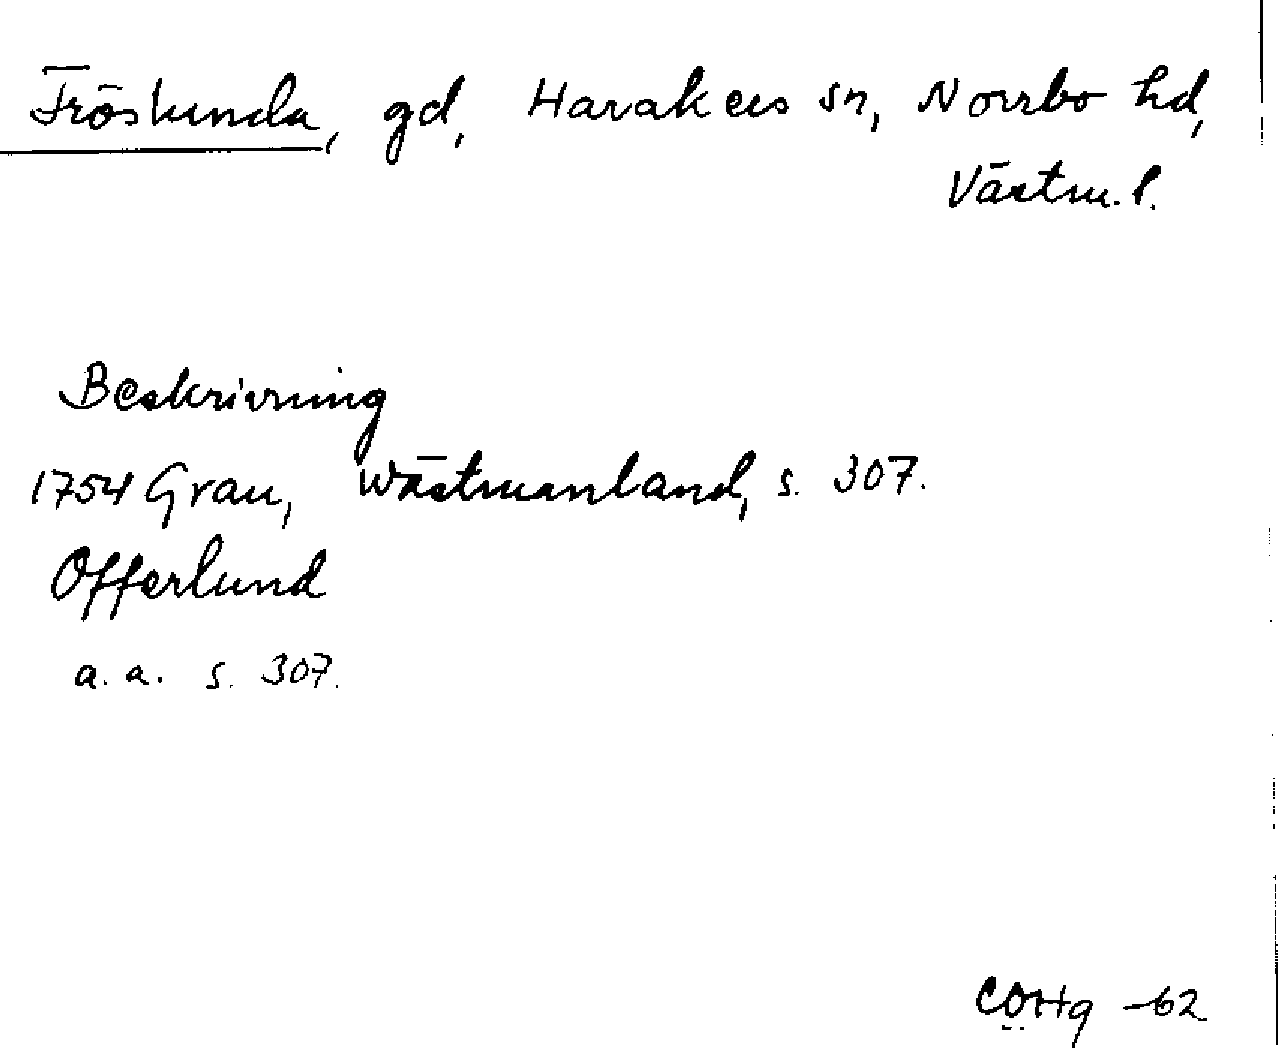 Fröslunda, gd, Harakers sn, Norrbo hd,
Västm. l.
Beskrivning
1754 Grau, Wästmanland, s. 307.
Offerlund
a. a. s. 307.
-62